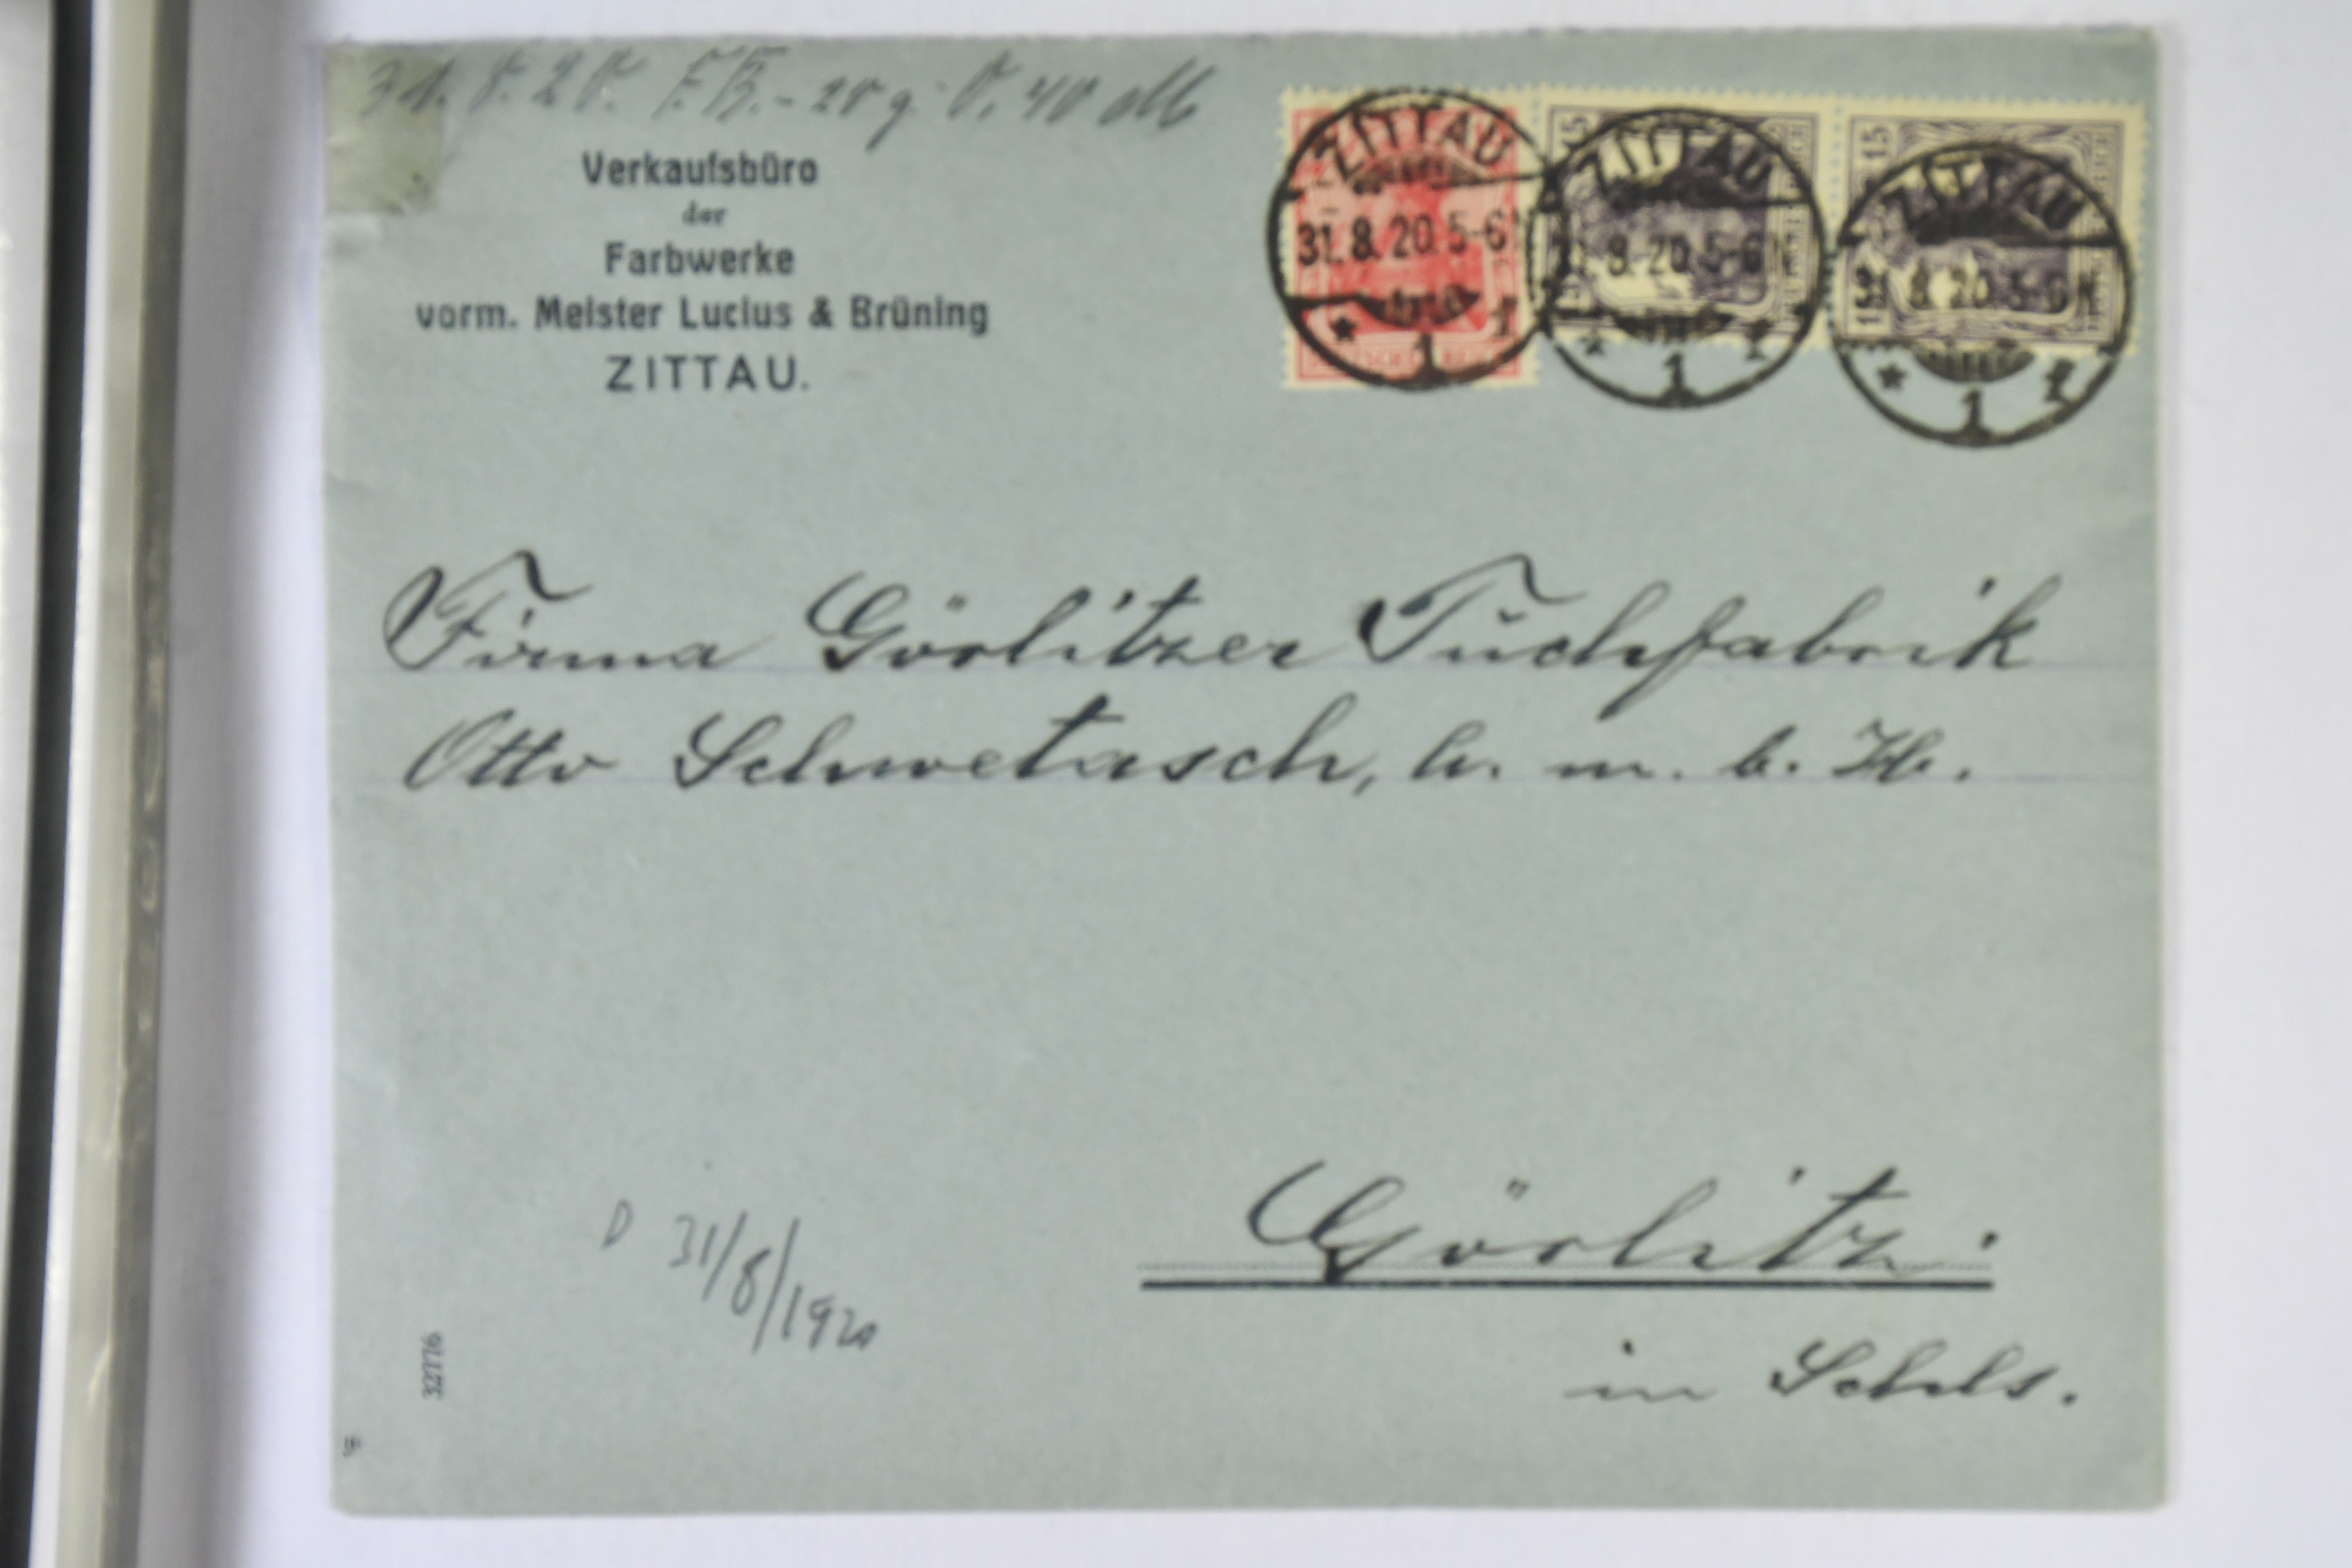 31. 8. 20. F.B. - 20 g. 0,40 M
Verkaufsbüro
der
Farbwerke
vorm. Meister Lucius & Brüning
ZITTAU.
ZITTAU
31. 8. 20. 5-6 N
* 1 f
15
ZITTAU
31. 8. 20. 5-6 N
* 1 f
15
ZITTAU
31. 8. 20. 5-6 N
* 1 f
Firma Görlitzer Tuchfabrik
Otto Schwetasch, G. m. b. H.
Görlitz.
in Schls.
D 31/8/1920
32776